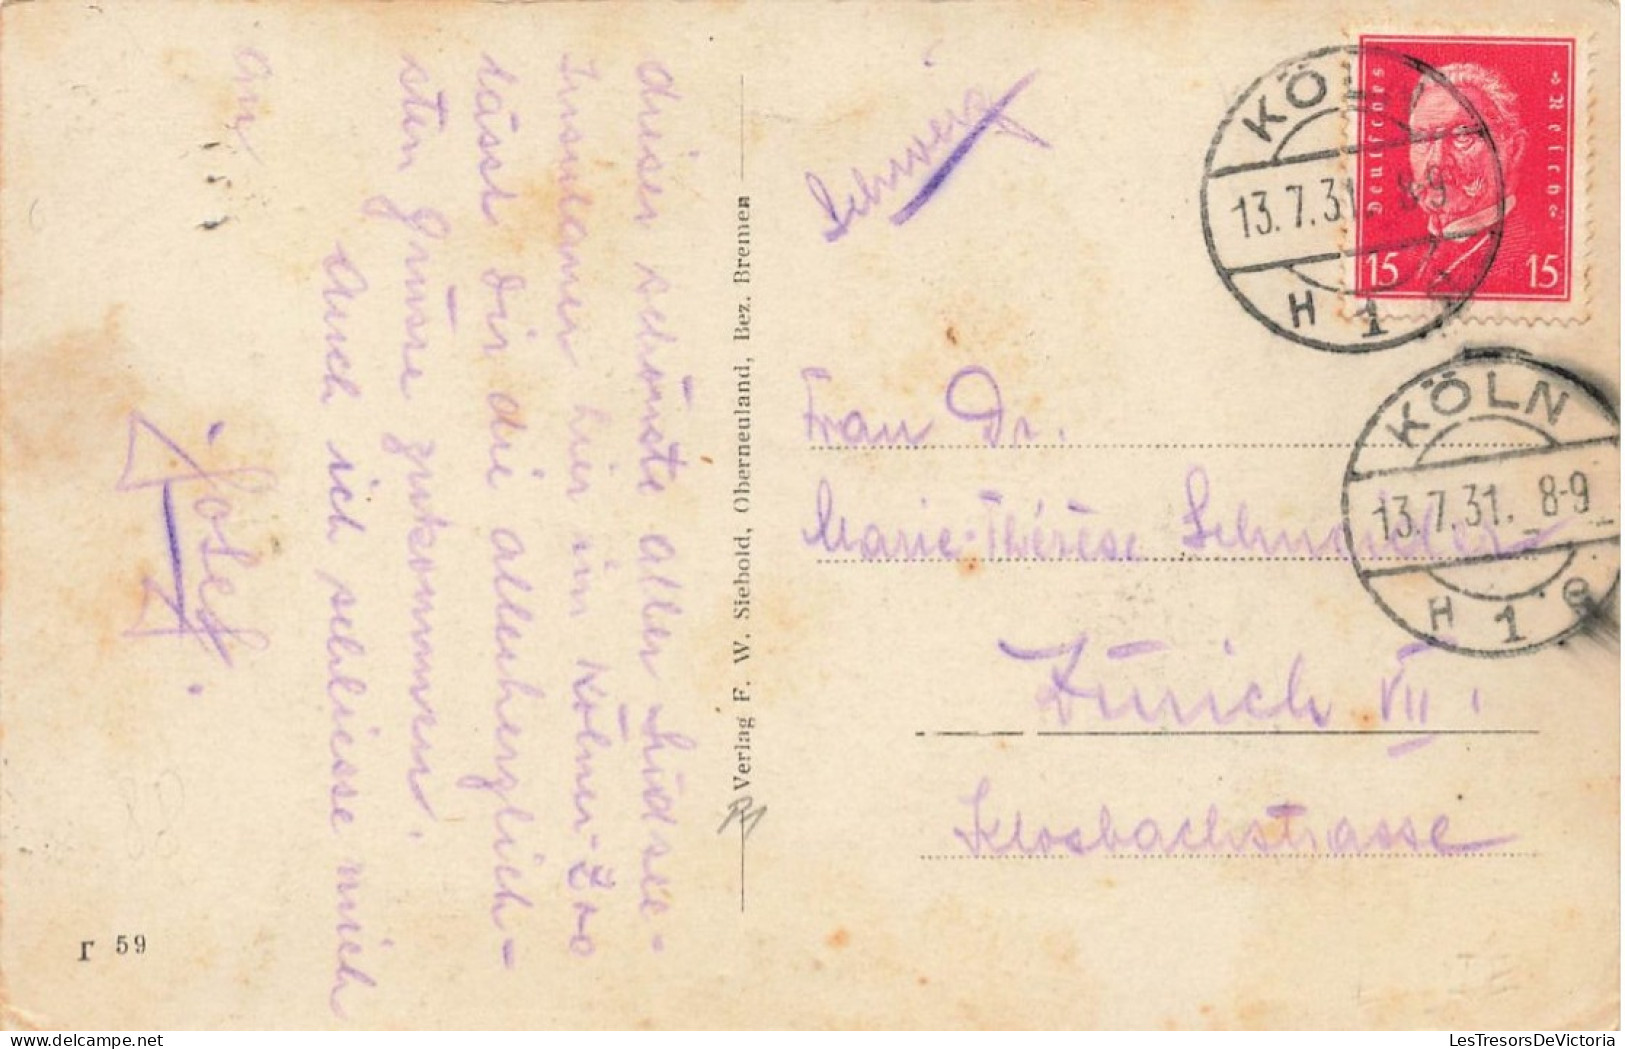 dieser schönste aller Südsee-
Insulaner hier im Kölner-Zoo
lässt Dir die allerherzlich-
sten Grüsse zukommen.
Auch ich schliesse mich
an
Josef.
r 59
Verlag F. W. Siebold, Oberneuland, Bez. Bremen
Schweiz
Deutsches Reich
15 15
KÖLN
13.7.31. 8-9
H 1
KÖLN
13.7.31. 8-9
H 1 e
Frau Dr.
Marie-Thérèse
Zürich VII,
Klosbachstrasse
LesTresorsDeVictoria